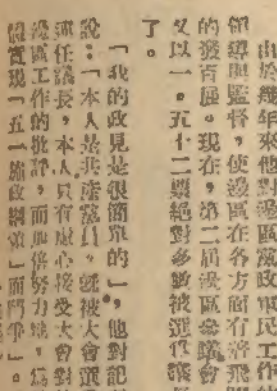 由於幾年來他對邊區黨政軍民工作
領導與監督，使邊區在各方面有著飛
的獲百展。現在，第二屆邊區參議會
又以一。五十二票絕對多數被選任議
了。
「我的政見是很簡單的」，他對記
說：「本人是共產黨員，旣被大會選
任議長，本人只有虛心接受大會對
邊區工作的批評，而加倍努力
實現「五一施政綱領」而鬥爭」。